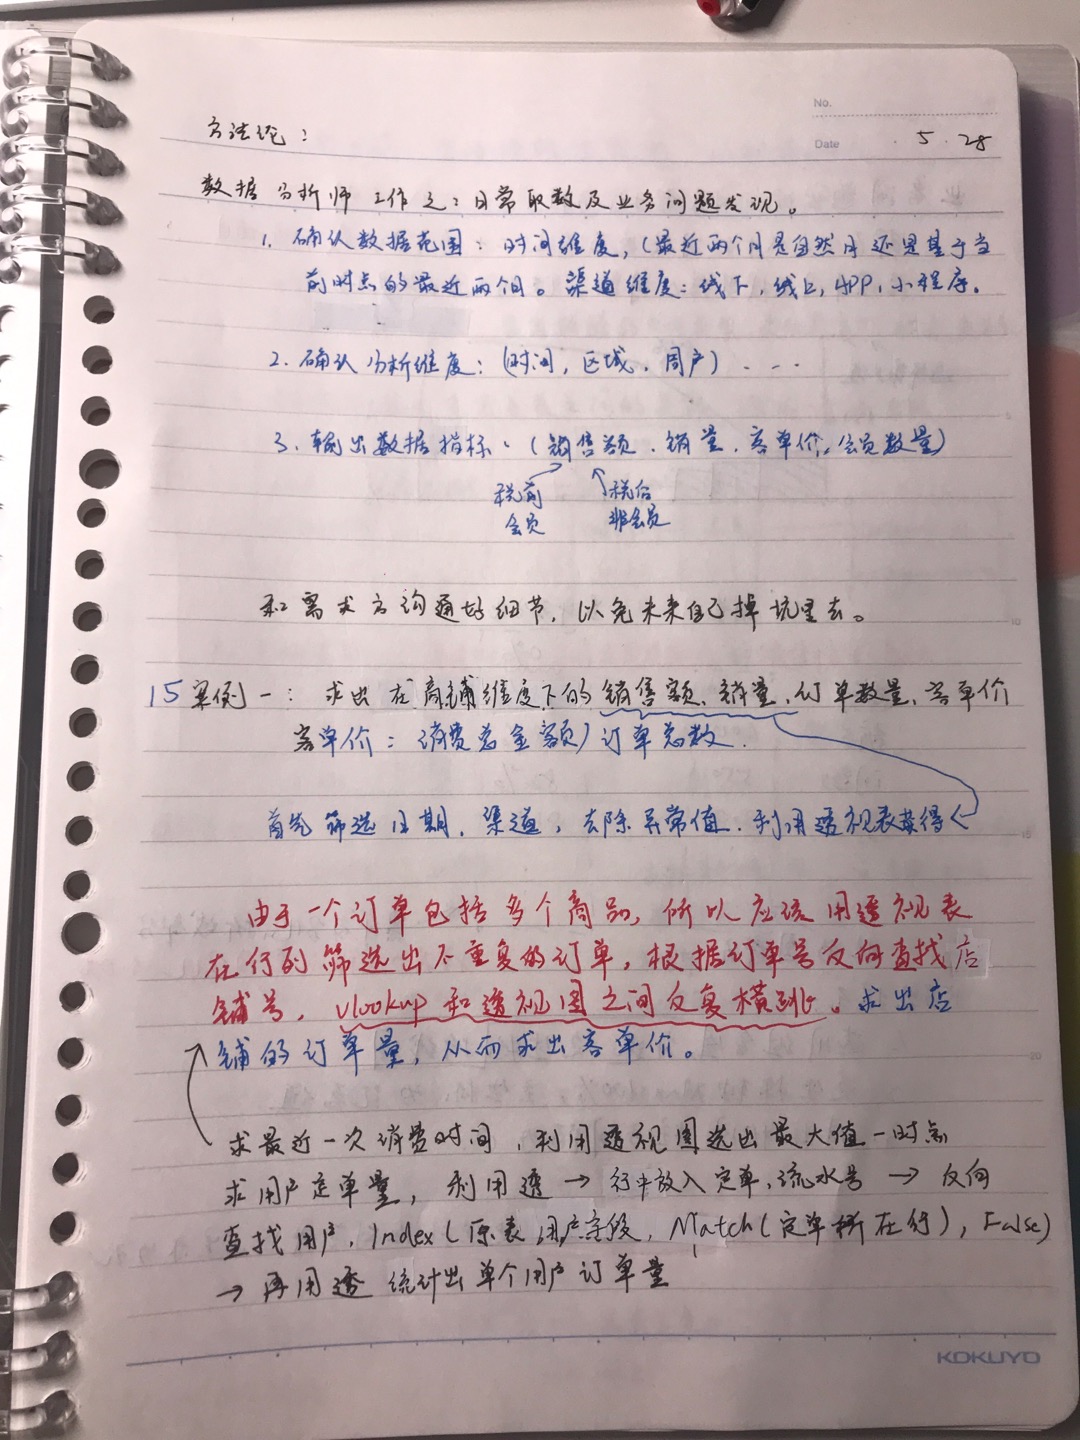 No.
Date 5.28
方法论：
数据分析师工作之：日常取数及业务问题发现。
1. 确认数据范围：时间维度，(最近两个月是自然月还是基于当
前时点的最近两个月。渠道维度：线下，线上，APP，小程序。
2. 确认分析维度：(时间，区域，用户) ....
3. 输出数据指标．(销售额．销量．客单价，会员数量)
税前 税后
会员 非会员
和需求方沟通好细节，以免未来自己掉坑里去。
15案例一：求出在商铺维度下的销售额、销量，订单数量、客单价
客单价：消费总金额/订单总数．
首先筛选日期，渠道，去除异常值．利用透视表获得
由于一个订单包括多个商品，所以应该用透视表
在行列筛选出不重复的订单，根据订单号反向查找店
铺号，vlookup和透视图之间反复横跳。求出店
铺的订单量，从而求出客单价。
求最近一次消费时间，利用透视图选出最大值一时点
求用户定单量，利用透→行中放入定单，流水号→反向
查找用户，Index(原表用户字段，Match(定单所在行)，False)
→再用透统计出单个用户订单量
KOKUYO